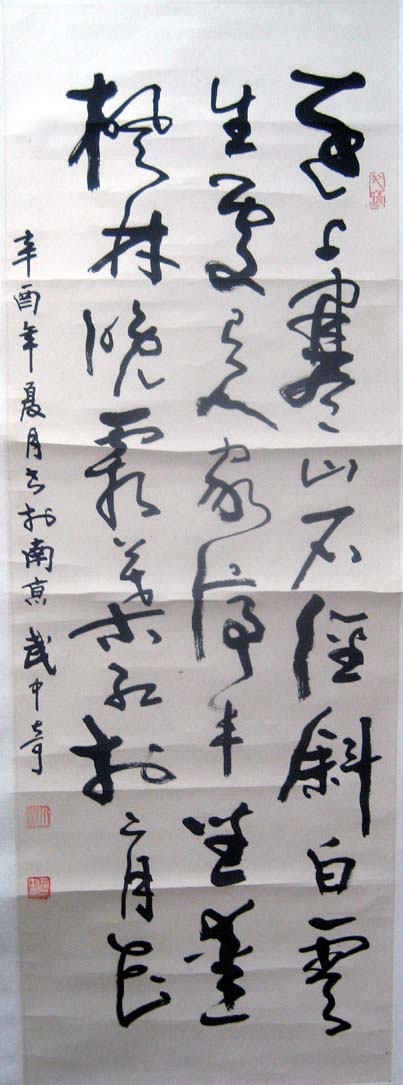 遠上寒山石徑斜白雲
生處有人家停車坐愛
楓林晚霜葉紅於二月花
辛酉年夏月書於南京武中奇